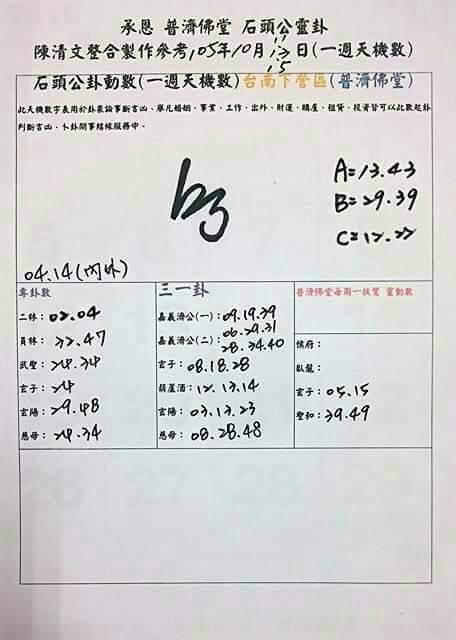 承恩 普濟佛堂 石頭公靈卦
陳清文整合製作參考,105年10月 11.12 15 日(一週天機數)
石頭公卦動數(一週天機數)台南下營區(普濟佛堂)
此天機數字表用於卦象論事斷吉凶、舉凡婚姻、事業、工作、出外、財運、購屋、租貸、投資皆可以此數起卦
判斷吉凶、卜卦問事結緣服務中。
A=13.43
B=29.39
C=12.22
04.14(內外)
專卦數
二林:02.04
員林:32.47
武聖:24.34
玄子:24
玄陽:29.48
慈母:24.34
三一卦
嘉義濟公(一):09.19.39
嘉義濟公(二):06.29.31
28.34.40
玄子:08.18.28
葫蘆酒:12.13.14
玄陽:03.13.23
慈母:08.28.48
普濟佛堂每周一扶鸞 靈動數
候府:
臥龍:
玄子:05.15
聖和:39.49